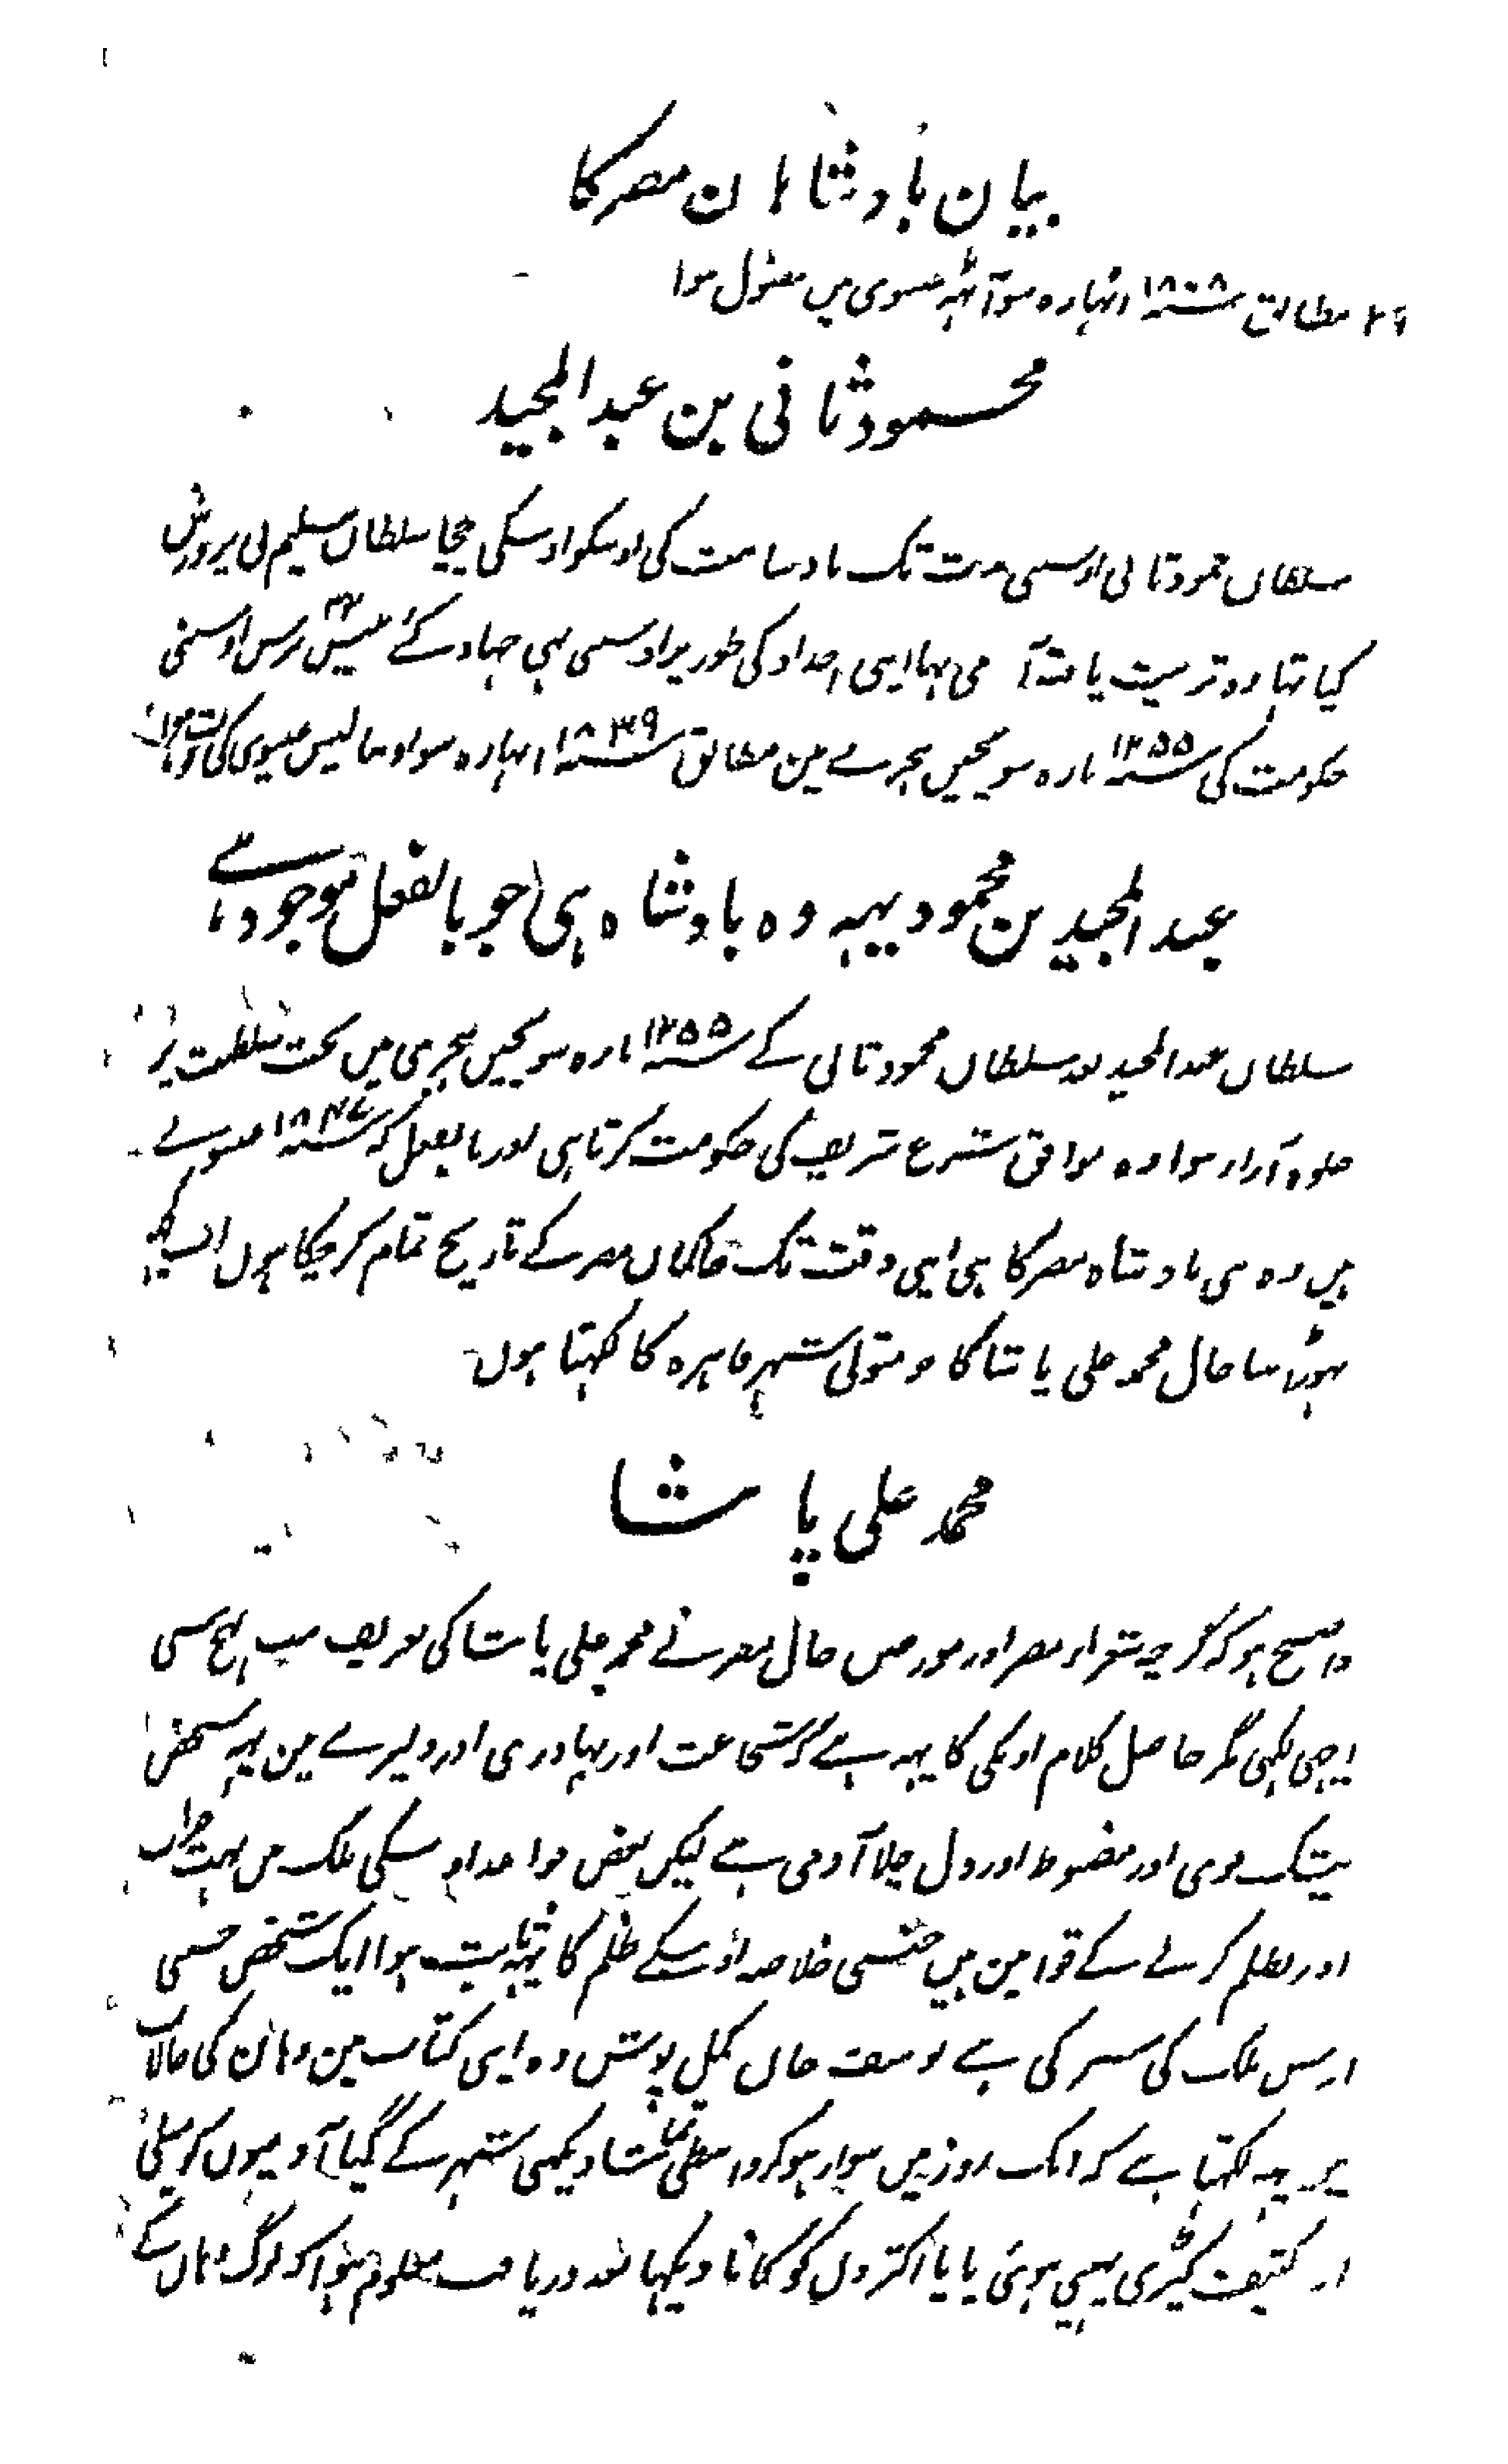 بیان بادشاہان مصر کا
مطابق ۱۸۰۸ اٹہارہ سو آٹہہ عیسوی میں معزول ہوا
محمود ثانی بن عبد المجید
سلطان محمود ثانی اوسی مدت تک بادشاہت کی اوسکو اوسکی چچا سلطان سلیم نی پرورش
کیا تہا وہ تربیت یافتہ آدمی تہا اپنی اجداد کی طور پر اوسنی بہی جہاد کئے برس اوسنی
حکومت کی ۱۲۵۵ بارہ سو پچپن ہجرے مین مطابق ۱۸۳۹ اٹہارہ سو اونتالیس عیسوی کی فوت ہوا
عبد المجید بن محمود یہہ وہ بادشاہ ہی جو بالفعل موجود ہے
سلطان عبد المجید بعد سلطان محمود ثانی کے ۱۲۵۵ بارہ سو پچپن ہجری میں تخت سلطنت پر
جلوہ آرا ہوا وہ موافق شرع شریف کی حکومت کرتا ہی اور بالفعل کہ ۱۸۴۷ عیسوے
ہیں وہ ہی بادشاہ مصر کا ہی اس وقت تک حاکمان مصر کے تاریخ تمام کر چکا ہوں
تہوڑا سا حال محمد علی پاشا کا جو متولی شہر قاہرہ کا کہتا ہوں
محمد علی پاشا
واضح ہو کہ گرچہ شعراء مصر اور مورخین حال مصر نے محمد علی پاشا کی تعریف
لکہی مگر حاصل کلام اونکی کا یہہ ہے کہ شجاعت اور بہادری اور دلیرے مین یہہ شخص
بیشک قوی اور مضبوط اور دل چلا آدمی ہے لیکن بعض قواعد اوسکی ملک میں بہت خراب
اور ظلم کرنے کے قوامین ہیں جنسی خلاصہ اوسکے ظلم کا یہہ ثابت ہوا ایک شخص جسی
اس ملک کی سیر کی ہے یوسف خان کمل پوش وہ اپنی کتاب مین وہان کی حالات
پر یہہ لکہتا ہے کہ ایک روز میں سوار ہو کر واسطی تماشا دیکہی شہر کے گیا آدمیوں کو میلی
اور کثیف کپڑی پہنی ہوئی پایا اکثروں کو کانا دیکہا بعد دریافت معلوم ہوا کہ لوگ وہاں کے